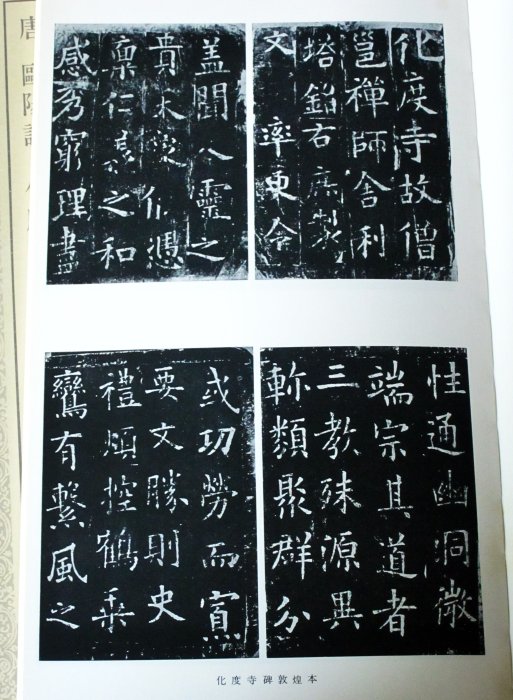 唐 歐陽詢
化度寺故僧
邕禪師舎利
塔銘右庶製
文 率更令
盖聞人靈之
貴天象攸憑
稟仁義之和
感秀窮理盡
性通幽洞微
端宗其道者
三教殊源異
軫類聚群分
或功勞而寡
要文勝則史
禮煩控鶴乘
鸞有繫風之
化度寺碑敦煌本